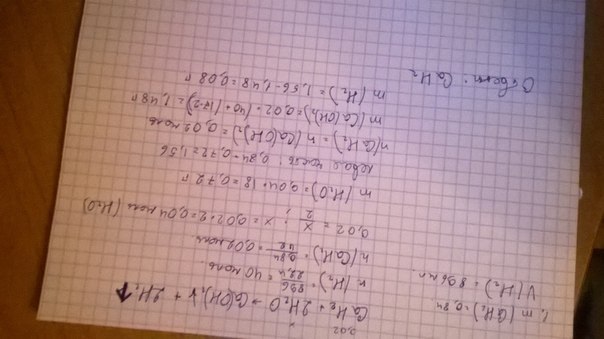 0,02
CaH₂ + 2H₂O → Ca(OH)₂↓ + 2H₂↑
1. m(CaH₂) = 0,84
V(H₂) = 896 мл.
n(H₂) = 896/22,4 = 40 моль.
n(CaH₂) = 0,84/42 = 0,02 моль
0,02 = x/2 ; x = 0,02·2 = 0,04 моль (H₂O)
m(H₂O) = 0,04·18 = 0,72 г
левая часть: 0,84 + 0,72 = 1,56
n(CaH₂) = n(Ca(OH)₂) = 0,02 моль
m(Ca(OH)₂) = 0,02·(40+(17·2)) = 1,48 г
m(H₂) = 1,56 - 1,48 = 0,08 г
Ответ: CaH₂